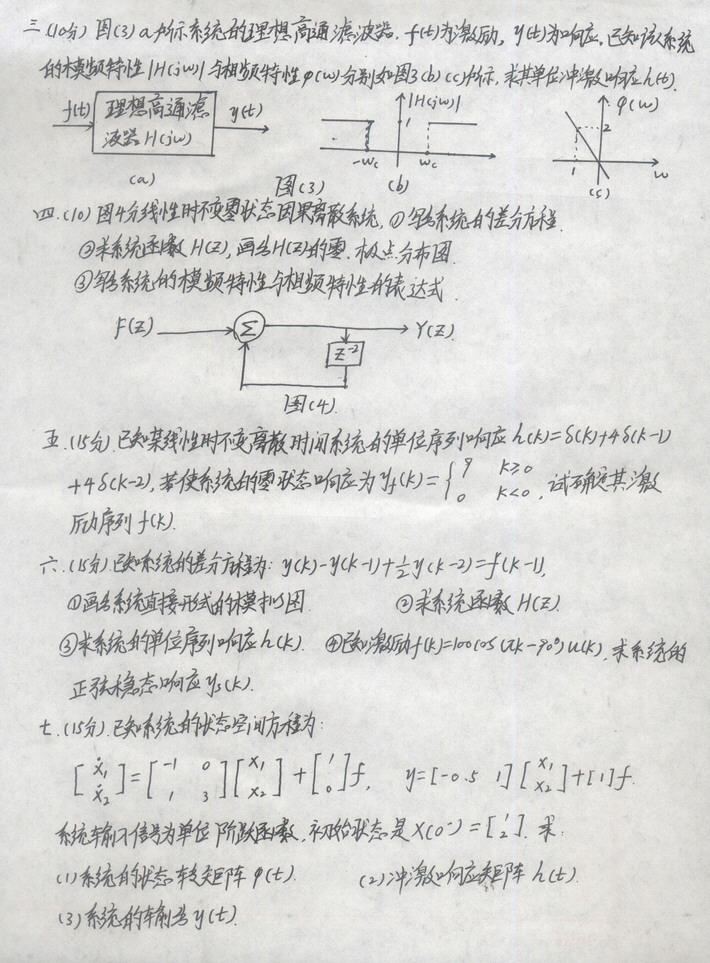 三.(10分) 图(3) a所示系统的理想高通滤波器. f(t)为激励, y(t)为响应, 已知该系统
的模频特性|H(jw)|与相频特性φ(w)分别如图3(b)(c)所示, 求其单位冲激响应h(t).
f(t) 理想高通滤 y(t)
波器H(jw)
(a)
|H(jw)|
1
-Wc Wc
(b)
图(3)
φ(w)
2
1 w
(c)
四.(10) 图4为线性时不变零状态因果离散系统, ①写出系统的差分方程
②求系统函数H(Z), 画出H(Z)的零.极点分布图.
③写出系统的模频特性与相频特性的表达式
F(Z) Σ Y(Z)
Z⁻²
图(4).
五.(15分).已知某线性时不变离散时间系统的单位序列响应h(k)=δ(k)+4δ(k-1)
+4δ(k-2), 若使系统的零状态响应为yf(k)={9 k≥0
0 k<0, 试确定其激
励序列f(k).
六.(15分).已知系统的差分方程为: y(k)-y(k-1)+½y(k-2)=f(k-1),
①画出系统直接形式的模拟图. ②求系统函数H(Z).
③求系统的单位序列响应h(k). ④已知激励f(k)=100cos(πk-90°)u(k), 求系统的
正弦稳态响应ys(k).
七.(15分).已知系统的状态空间方程为:
[ẋ₁ ẋ₂]=[-1 0 1 3][x₁ x₂]+[1 0]f, y=[-0.5 1][x₁ x₂]+[1]f.
系统输入信号为单位阶跃函数, 初始状态是X(0⁻)=[1 2]. 求:
(1)系统的状态转矩阵φ(t). (2)冲激响应矩阵h(t).
(3)系统的输出y(t).